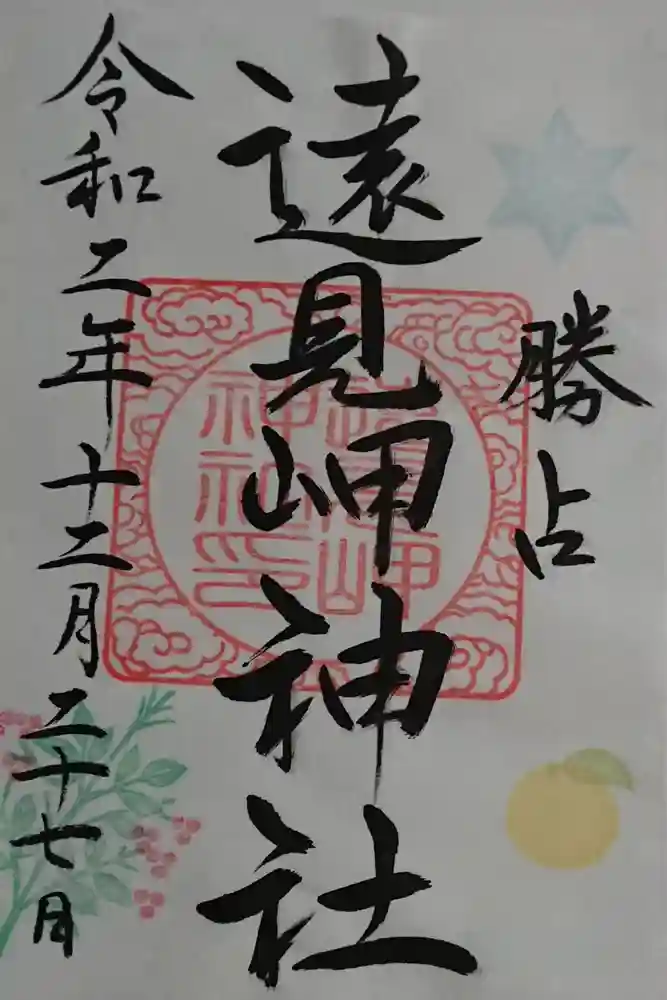 勝占
遠見岬神社
遠見岬
神社印
令和二年十二月二十七日